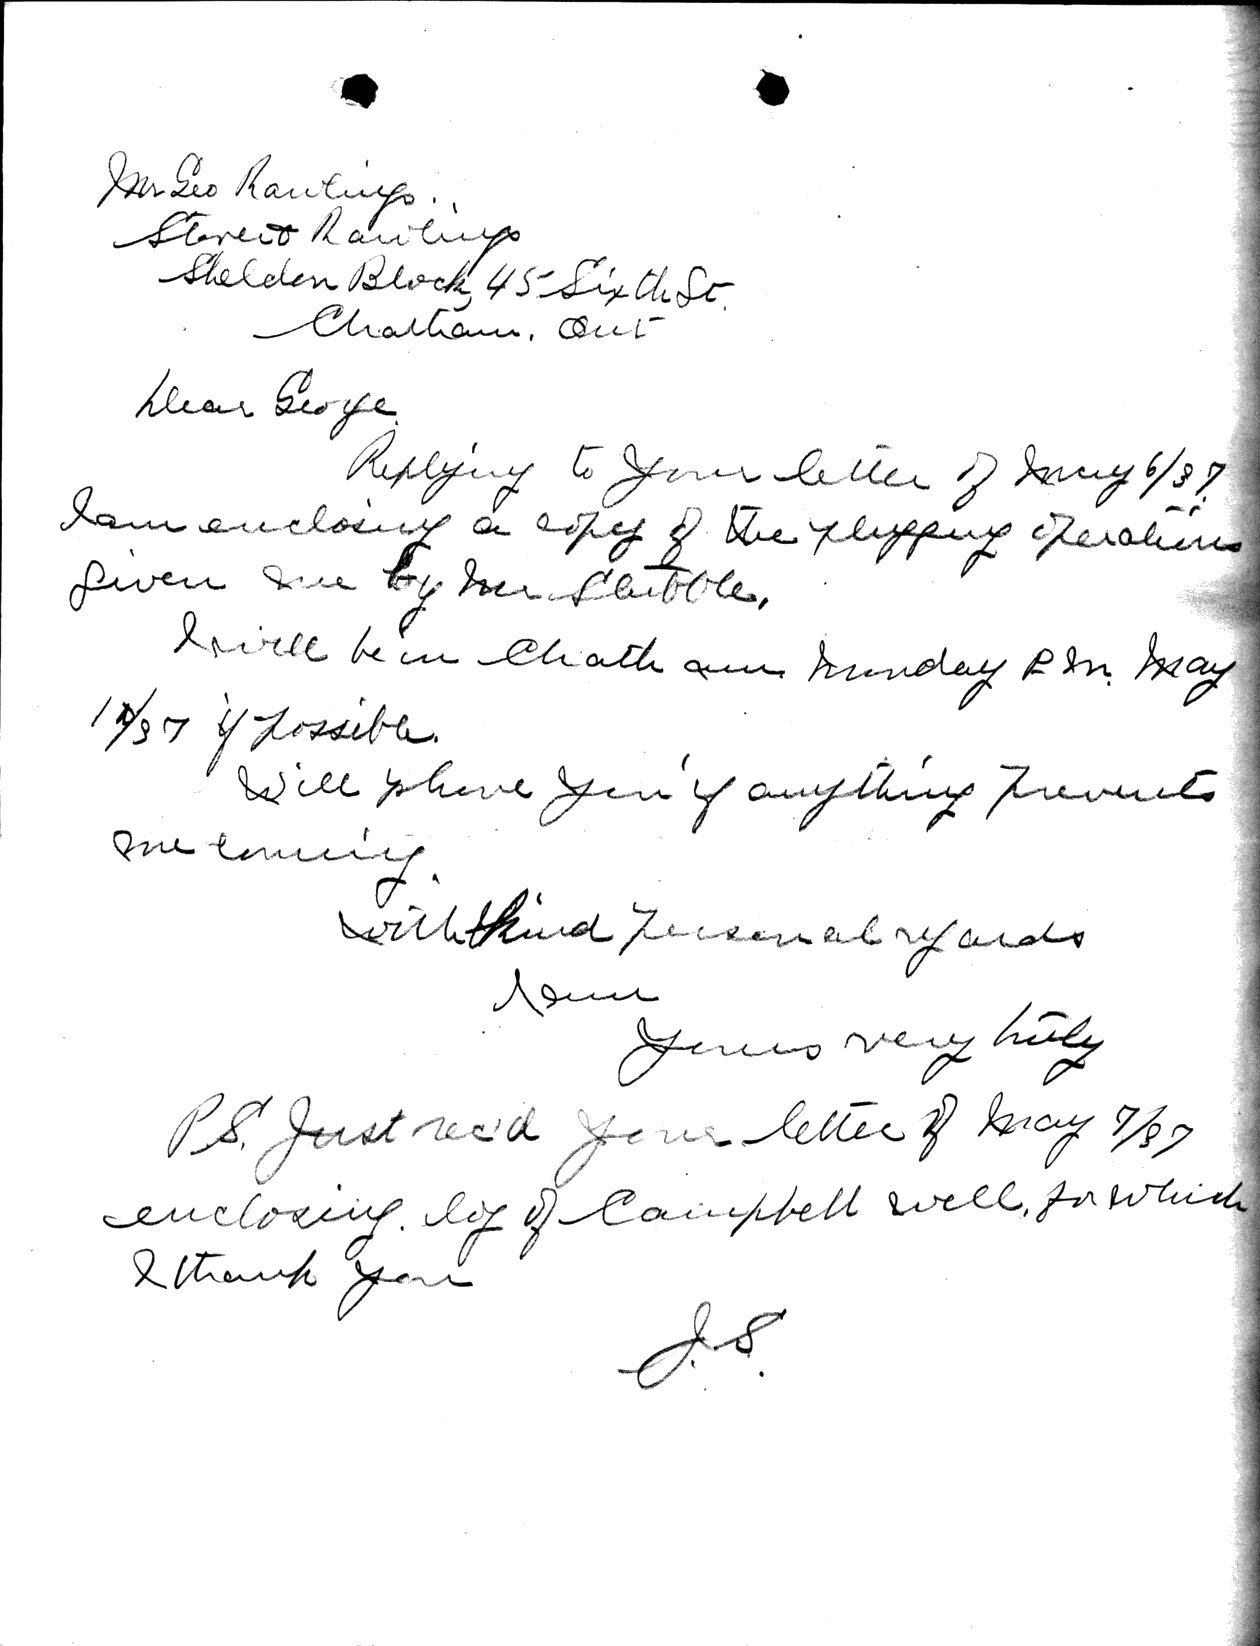 Mr Geo Rawlings.
Rawlings
Sheldon Block, 45 Sixth St.
Chatham. Ont
Dear George.
Replying to your letter of May 6/37.
I am enclosing a copy of the plugging operations
given me by Mr Stubble.
I will be in Chatham Monday P.M. May
/37 if possible.
Will phone you if anything prevents
me coming.
With kind personal regards
I am
Yours very truly
P.S. Just rec'd your letter of May 7/37
enclosing. log of Campbell well, for which
I thank you
J.S.